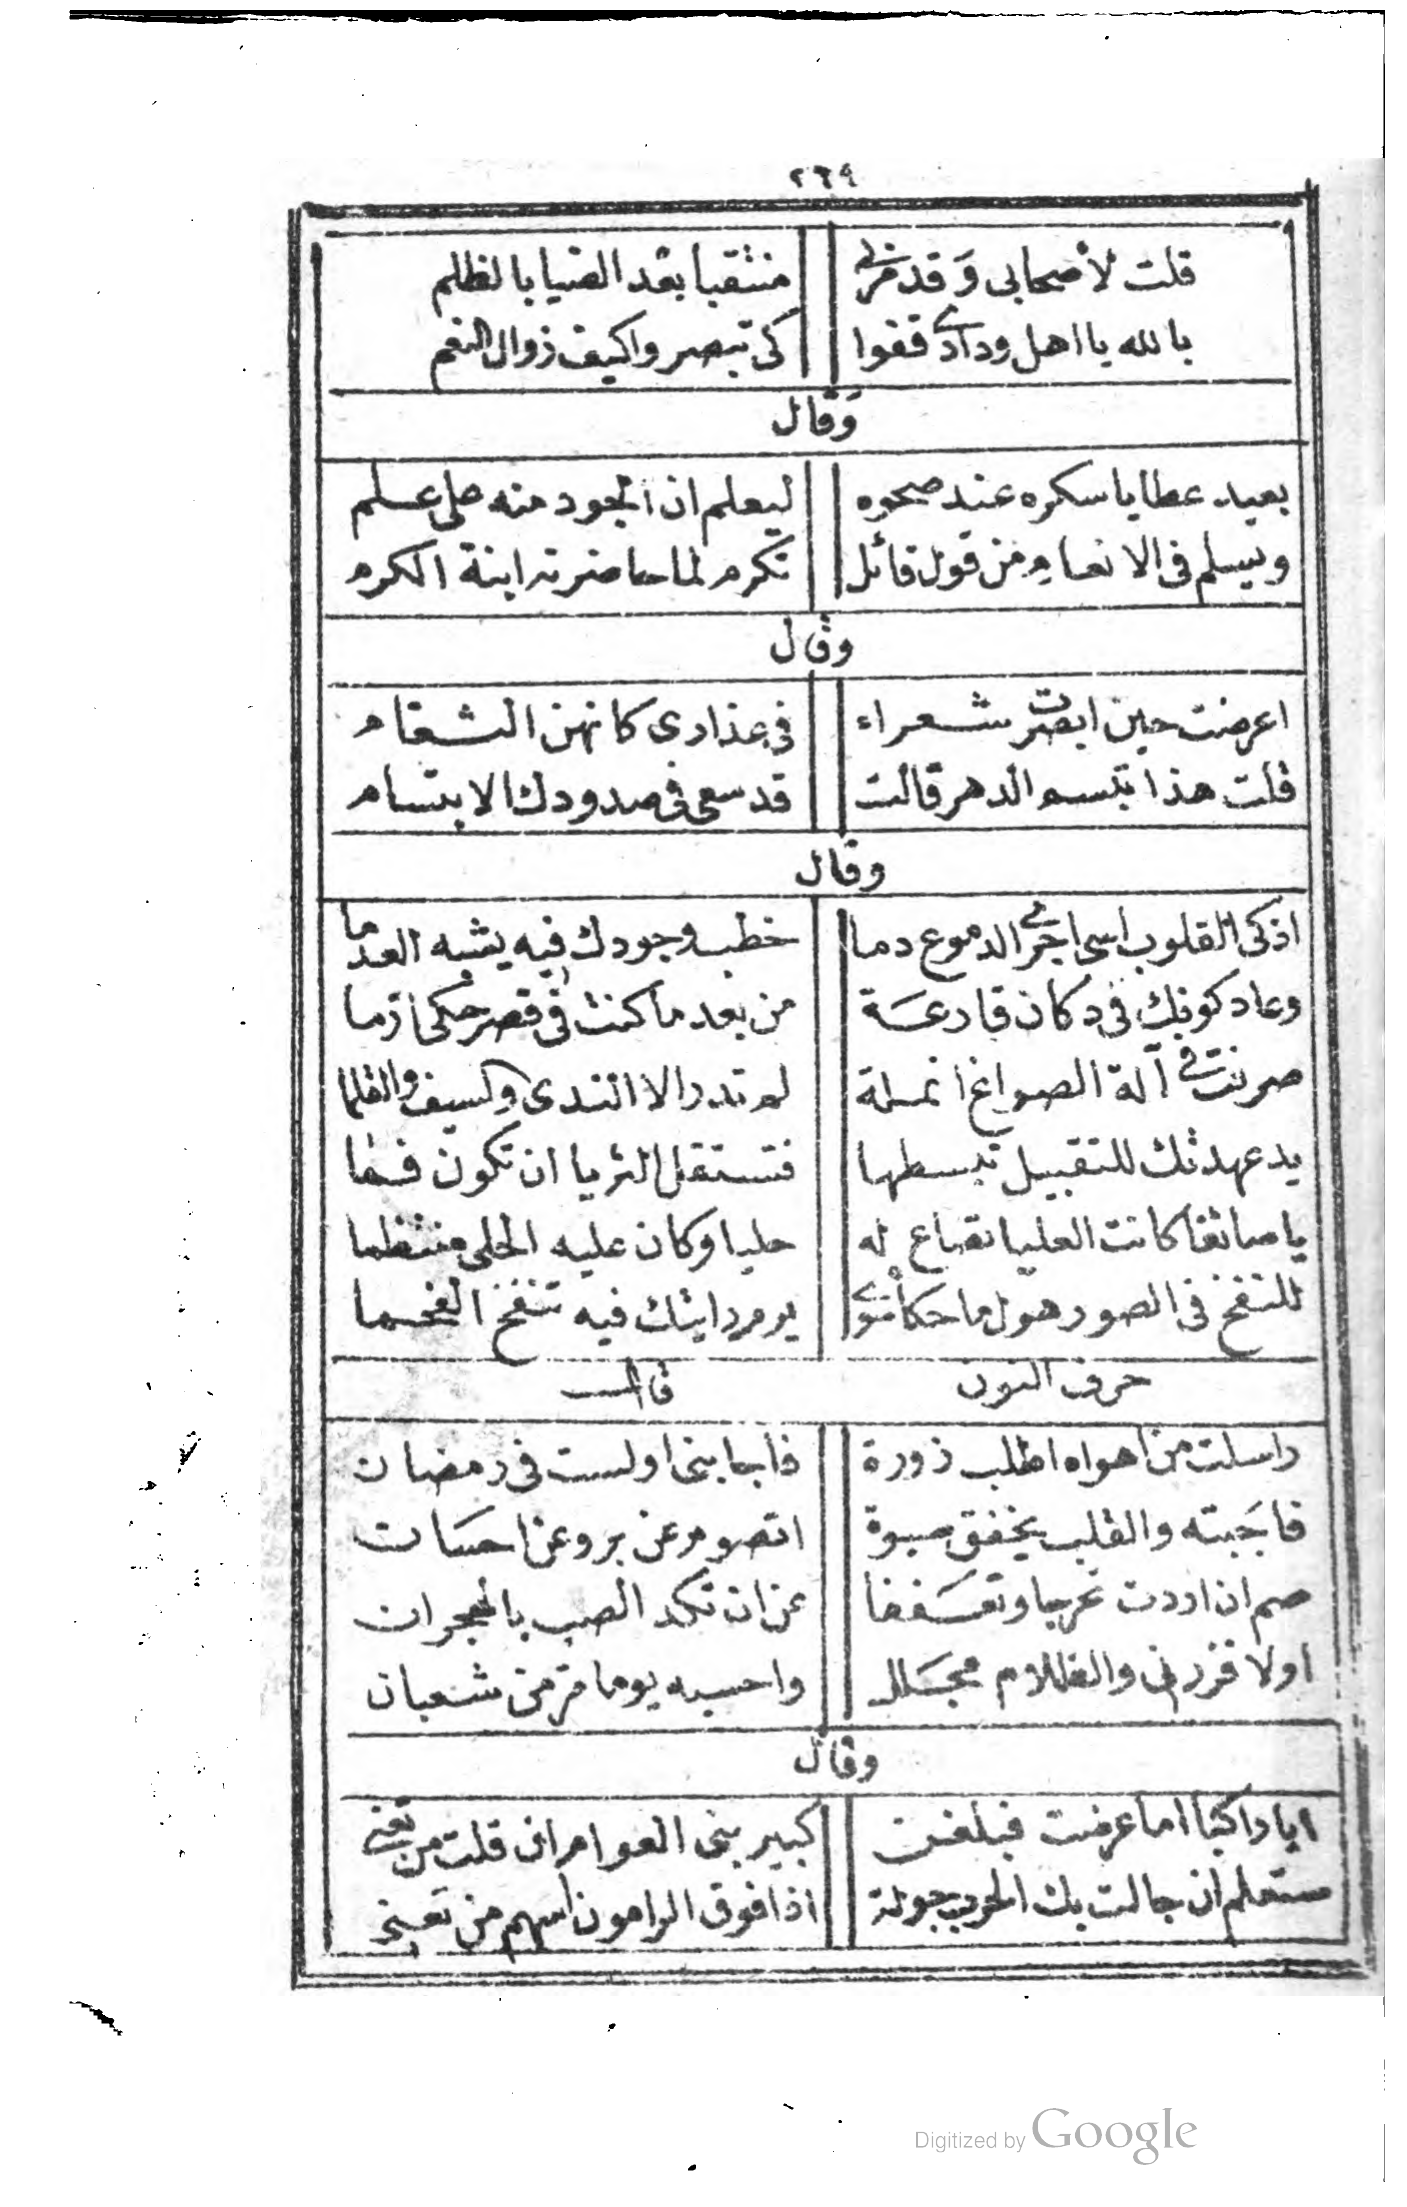 ٢٦٩
قلت لأصحابى وَقد مر بى منتقبا بعد الضيا بالظلم
بالله يا اهل ودادى قفوا كى تبصروا كيف زوال النعم
وَقال
بعيد عطايا سكره عند صحوه ليعلم ان الجود منه على علم
ويسلم فى الانعام من قول قائل تكرم لما خامرته ابنة الكرم
وقال
اعرضت حين ابصرت شعراء فى عذارى كانهن الثغام
قلت هذا تبسم الدهر قالت قد سعى فى صدودك الابتسام
وقال
اذكى القلوب اسى اجرى الدموع دما خطب وجودك فيه يشبه العدما
وعاد كونك فى دكان قارعَة من بعد ما كنت فى قصر حكى ارما
صرفت فى آلة الصواغ انملة لم تدر الا الندى والسيف والقلما
يد عهدتك للتقبيل تبسطها فتستقل الثريا ان تكون فما
يا صائغا كانت العليا تصاغ له حليا وكان عليه الحلى منتظما
للنفخ فى الصور هول ما حكاه سوى يوم رايتك فيه تنفخ الفحما
حرف النون قال
راسلت من اهواه اطلب زورة فاجابنى اولست فى رمضان
فاجَبته والقلب يخفق صبوة اتصوم عن بر وعن احسان
صم ان اردت تحرجا وتعَففا عن ان تكد الصب بالهجران
اولا فزرنى والظلام مجَلل واحسبه يوما مر من شعبان
وقال
ايا راكبا اما عرضت فبلغن كبير بنى العوام ان قلت من تعنى
ستعلم ان جالت بك الحرب جولة اذا فوق الرامون اسهم من تعنى
Digitized by Google